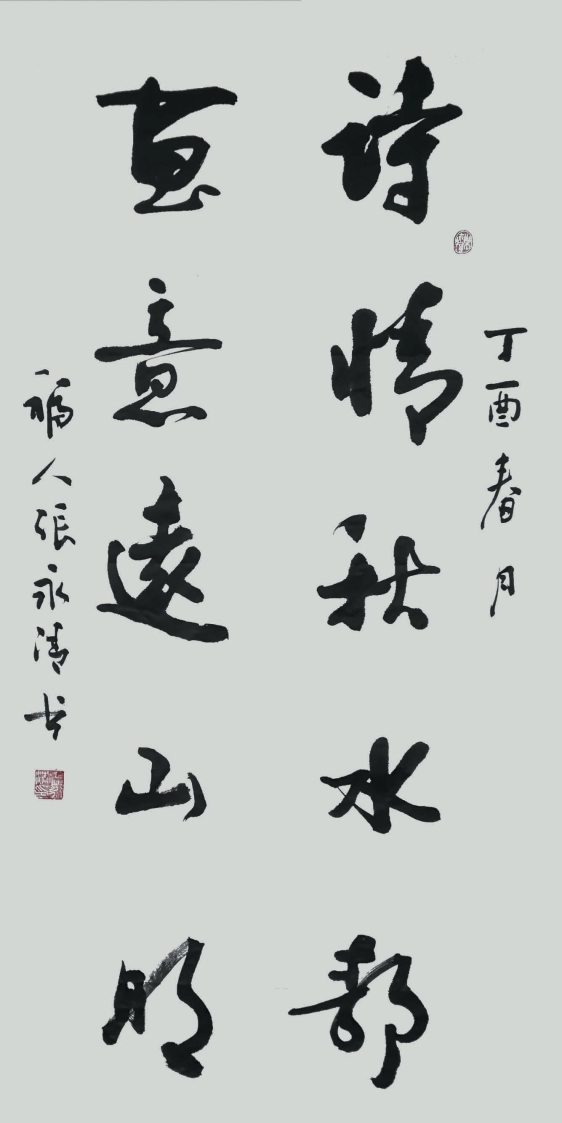 丁酉春月
詩情秋水静
畫意遠山明
人張永清书